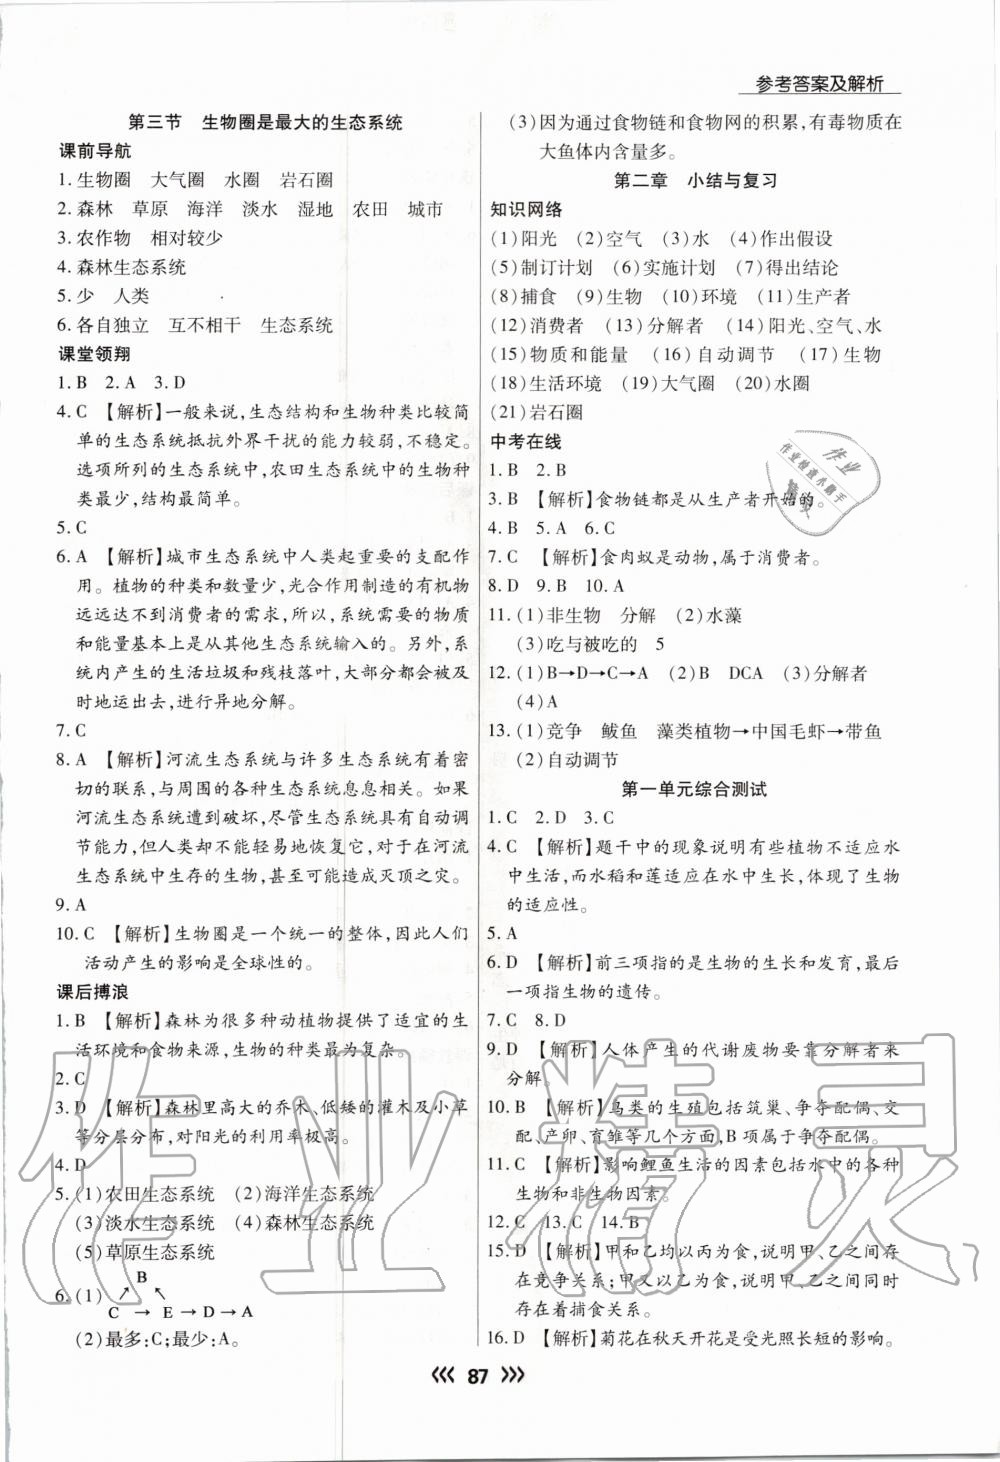 参考答案及解析
第三节 生物圈是最大的生态系统
课前导航
1.生物圈 大气圈 水圈 岩石圈
2.森林 草原 海洋 淡水 湿地 农田 城市
3.农作物 相对较少
4.森林生态系统
5.少 人类
6.各自独立 互不相干 生态系统
课堂领翔
1.B 2.A 3.D
4.C 【解析】一般来说,生态结构和生物种类比较简
单的生态系统抵抗外界干扰的能力较弱,不稳定。
选项所列的生态系统中,农田生态系统中的生物种
类最少,结构最简单。
5.C
6.A 【解析】城市生态系统中人类起重要的支配作
用。植物的种类和数量少,光合作用制造的有机物
远远达不到消费者的需求,所以,系统需要的物质
和能量基本上是从其他生态系统输入的。另外,系
统内产生的生活垃圾和残枝落叶,大部分都会被及
时地运出去,进行异地分解。
7.C
8.A 【解析】河流生态系统与许多生态系统有着密
切的联系,与周围的各种生态系统息息相关。如果
河流生态系统遭到破坏,尽管生态系统具有自动调
节能力,但人类却不能轻易地恢复它,对于在河流
生态系统中生存的生物,甚至可能造成灭顶之灾。
9.A
10.C 【解析】生物圈是一个统一的整体,因此人们
活动产生的影响是全球性的。
课后搏浪
1.B 【解析】森林为很多种动植物提供了适宜的生
活环境和食物来源,生物的种类最为复杂。
2.C
3.D 【解析】森林里高大的乔木、低矮的灌木及小草
等分层分布,对阳光的利用率极高。
4.D
5.(1)农田生态系统 (2)海洋生态系统
(3)淡水生态系统 (4)森林生态系统
(5)草原生态系统
B
6.(1) ↗ ↖
C → E → D → A
(2)最多:C;最少:A。
(3)因为通过食物链和食物网的积累,有毒物质在
大鱼体内含量多。
第二章 小结与复习
知识网络
(1)阳光 (2)空气 (3)水 (4)作出假设
(5)制订计划 (6)实施计划 (7)得出结论
(8)捕食 (9)生物 (10)环境 (11)生产者
(12)消费者 (13)分解者 (14)阳光、空气、水
(15)物质和能量 (16)自动调节 (17)生物
(18)生活环境 (19)大气圈 (20)水圈
(21)岩石圈
中考在线
1.B 2.B
3.B 【解析】食物链都是从生产者开始的。
4.B 5.A 6.C
7.C 【解析】食肉蚁是动物,属于消费者。
8.D 9.B 10.A
11.(1)非生物 分解 (2)水藻
(3)吃与被吃的 5
12.(1)B→D→C→A (2)B DCA (3)分解者
(4)A
13.(1)竞争 鲅鱼 藻类植物→中国毛虾→带鱼
(2)自动调节
第一单元综合测试
1.C 2.D 3.C
4.C 【解析】题干中的现象说明有些植物不适应水
中生活,而水稻和莲适应在水中生长,体现了生物
的适应性。
5.A
6.D 【解析】前三项指的是生物的生长和发育,最后
一项指生物的遗传。
7.C 8.D
9.D 【解析】人体产生的代谢废物要靠分解者来
分解。
10.B 【解析】鸟类的生殖包括筑巢、争夺配偶、交
配、产卵、育雏等几个方面,B项属于争夺配偶。
11.C 【解析】影响鲤鱼生活的因素包括水中的各种
生物和非生物因素。
12.C 13.C 14.B
15.D 【解析】甲和乙均以丙为食,说明甲、乙之间存
在竞争关系;甲又以乙为食,说明甲、乙之间同时
存在着捕食关系。
16.D 【解析】菊花在秋天开花是受光照长短的影响。
87
作业精灵
作业
作业检查小助手
精灵